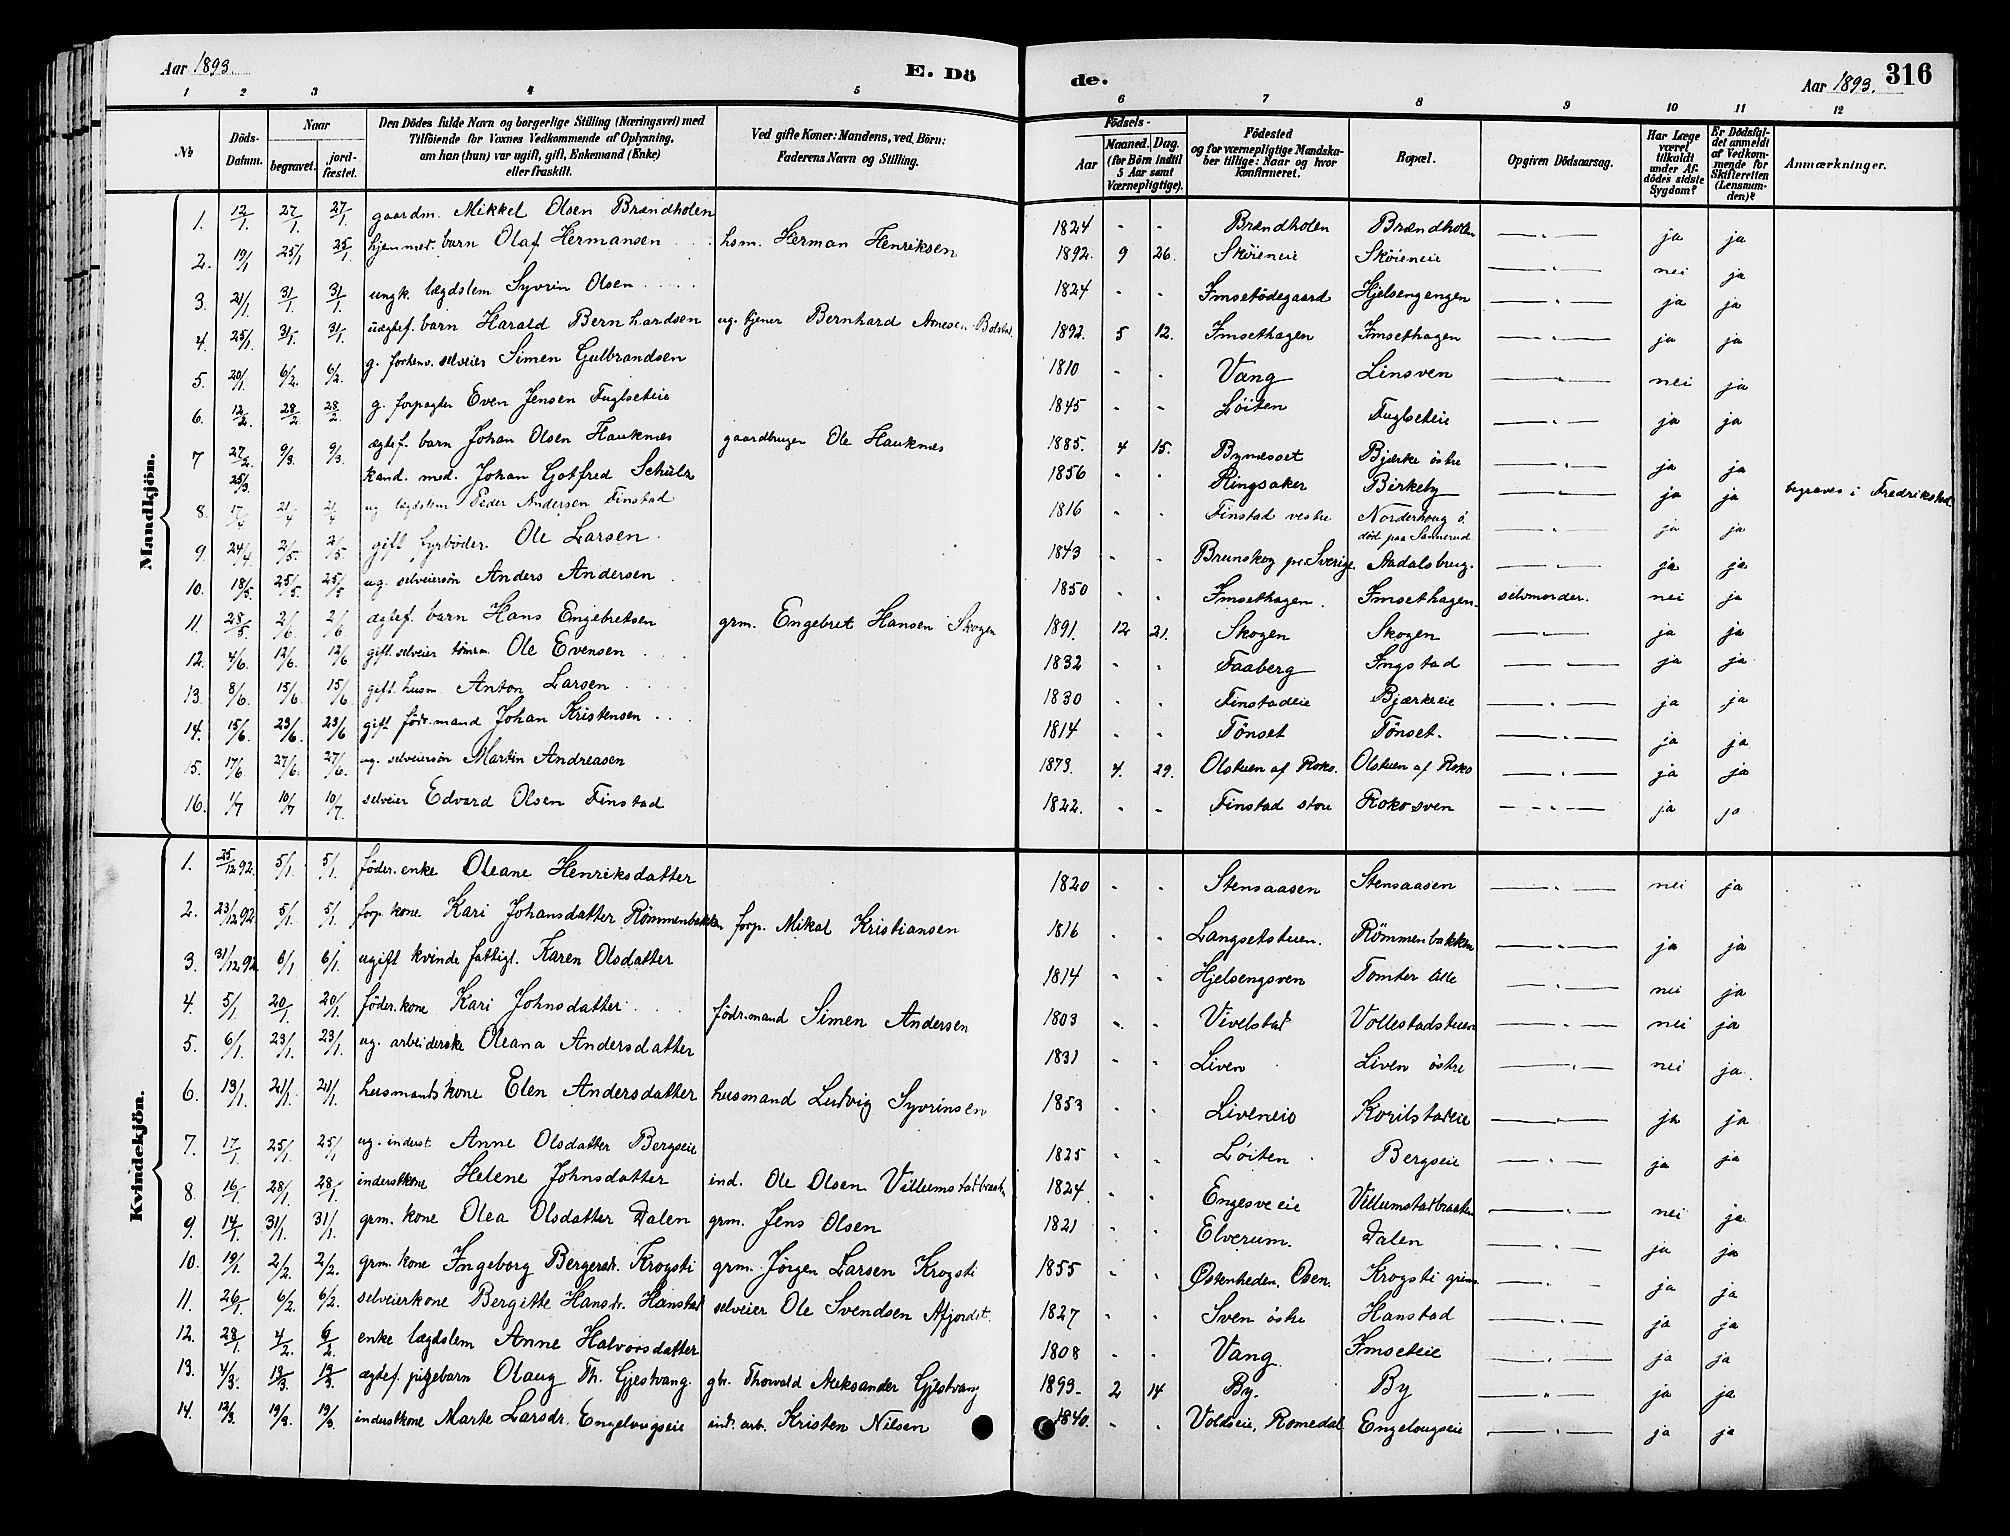 Aar 1893.
E. Dö
de.
Aar 1893.
316
1 2 3 4 5 6 7 8 9 10 11 12
No
Döds-Datum.
Naar
begravet. jordfæstet.
Den Dödes fulde Navn og borgerlige Stilling (Næringsvei) med
Tilföiende for Voxnes Vedkommende af Oplysning,
om han (hun) var ugift, gift, Enkemand (Enke)
eller fraskilt.
Ved gifte Koner: Mandens, ved Börn:
Faderens Navn og Stilling.
Födsels-
Aar Maaned. Dag.
(for Börn indtil
5 Aar samt
Værnepligtige).
Födested
og for værnepligtige Mandska-
ber tillige: Naar og hvor
konfirmeret.
Bopæl.
Opgiven Dödsaarsag.
Har Læge
været
tilkaldt
under Af-
dödes sidste
Sygdom?
Er Dödsfal-
det anmeldt
af Vedkom-
mende for
Skifteretten
(Lensman-
den)?
Anmærkninger.
Mandkjön.
1. 12/1 27/1 27/1 gaardm. Mikkel Olsen Brændholen 1824 - - Brændholen Brændholen — " — ja ja
2. 19/1 25/1 25/1 hjemmed. barn Olaf Hermansen hsm. Herman Henriksen 1892. 9 26. Skøieneie Skøieneie — " — nei ja
3. 21/1 31/1 31/1 ungk. lægdslem Syvrin Olsen 1824 - - Imsetödegaard Hjelsengengen — " — ja ja
4. 25/1 31/1 31/1 uægtef. barn Harald Bernhardsen ug. tjener Bernhard Arnesen Bolstad 1892. 5 12. Imsethagen Imsethagen — " — ja ja
5. 20/1 6/2. 6/2. g. forhenv. selveier Simen Gulbrandsen 1810 - - Vang Linsven — " — nei ja
6. 12/2. 28/2 28/2. g. forpagter Even Jensen Fuglseteie 1845 - - Löiten Fuglseteie — " — ja ja
7 27/2. 9/3. 9/3. ægtef. barn Johan Olsen Hauknæs gaardbruger Ole Hauknæs 1885. 4 15. Bynæsset Bjærke östre — " — ja ja
25/3. kand. med. Johan Gotfred Schulz 1856 - - Ringsaker Birkeby — " — ja ja begraves i Fredrikstad
8. 17/4 21/4 21/4 ug lægdslem Peder Andersen Finstad 1816 - - Finstad vestre Norderhoug ö. död paa Sannerud — " — ja ja
9. 24/4 2/5. 2/5. gift fyrböder Ole Larsen 1843 - - Brunskog pr. Sverige Aadalsbrug. — " — ja ja
10. 18/5. 25/5. 25/5 ug. selveiersön Anders Andersen 1850 - - Imsethagen. Imsethagen. selvmorder. nei ja
11. 28/5 2/6. 2/6 ægtef. barn Hans Engebretsen grm. Engebret Hansen Skogen 1891. 12 21. Skogen Skogen — " — ja ja
12. 4/6. 12/6. 12/6 gift selveier tömrm Ole Evensen 1832 - - Faaberg Ingstad — " — ja ja
13. 8/6 15/6 15/6 gift. husm Anton Larsen 1830 - - Finstadeie Bjærkeeie — " — ja ja
14. 15/6. 23/6. 23/6 gift födr. mand Johan Kristensen 1814 - - Tönset Tönset. — " — ja ja
15. 17/6 27/6. 27/6. ug. selveiersön Martin Andreasen 1873. 4. 29. Olstuen af Roko. Olstuen af Roko — " — ja ja
16. 1/7 10/7 10/7 selveier Edvard Olsen Finstad 1822. - - Finstad store Rokosven — " — ja ja
Kvindekjön.
1. 25/12 92. 5/1. 5/1. föder. enke Oleane Henriksdatter 1820 - - Stensaasen Stensaasen — " — nei ja
2. 23/12 92 5/1. 5/1. forp. kone Kari Johansdatter Römmenbakken forp. Mikal Kristiansen 1816 - - Langsetstuen. Römmenbakken — " — ja ja
3. 31/12 92 6/1 6/1. ugift kvinde fattigl. Karen Olsdatter 1814 - - Hjelsengsven Tomter lille — " — nei ja
4. 5/1 20/1 20/1. föder. kone Kari Johnsdatter födr. mand Simen Andersen 1803 - - Vivelstad Vollestadstuen — " — nei ja
5. 6/1 23/1. 23/1. ug. arbeiderske Oleana Andersdatter 1831 - - Liven Liven östre — " — nei ja.
6. 13/1. 21/1. 21/1. husmandskone Elen Andersdatter husmand Ludvig Syvrinsen 1853 - - Liveneie Korilstadeie — " — ja ja
7. 17/1. 25/1. 25/1 ug. inderst Anne Olsdatter Bergseie 1825 - - Löiten Bergseie — " — ja ja
8. 16/1 28/1. 28/1. inderstkone Helene Johnsdatter ind. Ole Olsen Villumstadbraaten 1824 - - Engesveeie Villumstadbraaten — " — nei ja
9. 14/1. 31/1. 31/1. grm. kone Olea Olsdatter Dalen grm. Jens Olsen 1821 - - Elverum. Dalen — " — ja ja
10. 19/1. 2/2. 2/2. grm kone Ingeborg Bergersdr. Krogsti grm. Jörgen Larsen Krogsti 1855 - - Östenheden, Osen. Krogsti grm. — " — ja ja
11. 26/1 6/2. 6/2. selveierkone Bergitte Hansdr. Hanstad selveier Ole Svendsen Afjordet. 1827 - - Sven östre Hanstad — " — ja ja
12. 28/1. 4/2. 6/2. enke lægdslem Anne Halvorsdatter 1808 - - Vang Imseteie — " — ja ja
13. 4/3. 13/3 13/3. ægtef. pigebarn Olaug Th. Gjestvang. gbr. Thorvald Aleksander Gjestvang 1893. 2 14 By. By — " — ja ja
14. 12/3. 19/3. 19/3. inderstkone Marte Larsdr. Engelougseie ind. arb. Kristen Nilsen 1840. - - Voldseie, Romedal Engelougseie — " — ja ja